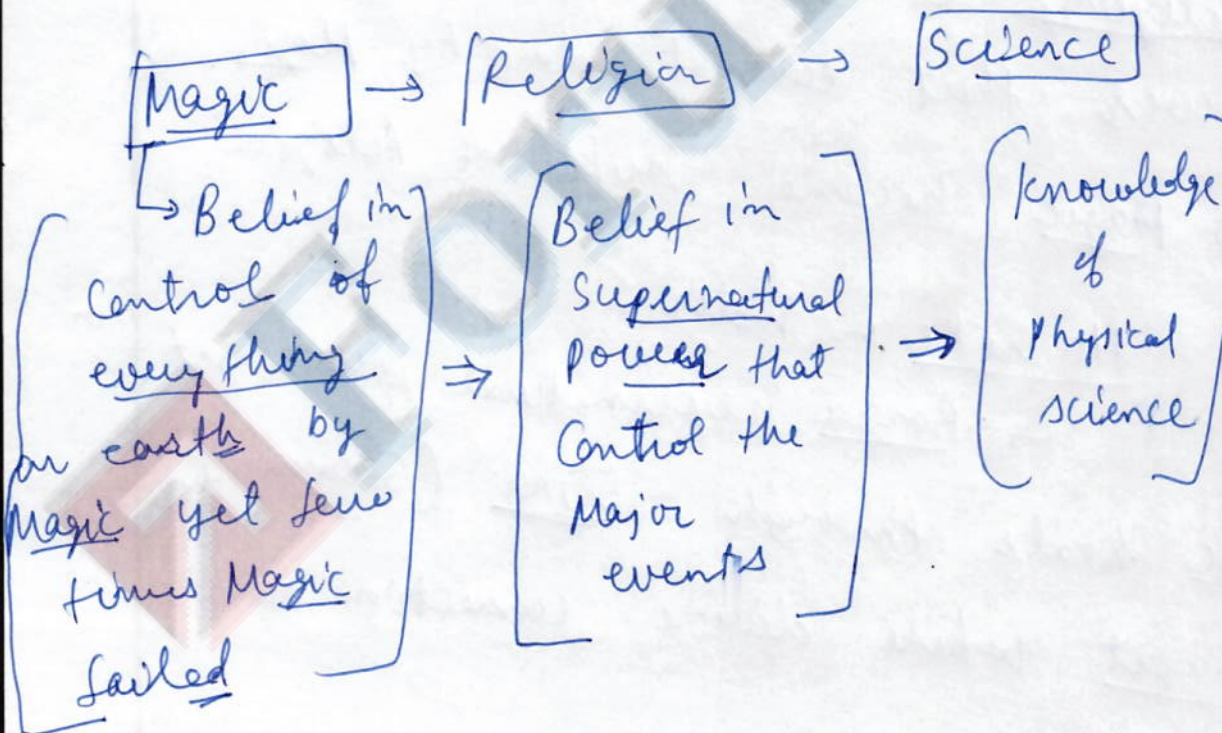 Magic → Religion → Science
Belief in
Control of
every thing
on earth by
Magic yet few
times Magic
failed
⇒
Belief in
Supernatural
power that
Control the
Major
events
⇒
knowledge
of
Physical
science
Forum